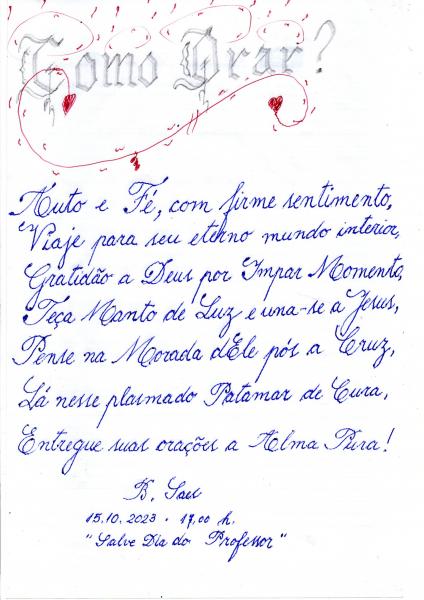 Como Orar?
Auto e Fé, com firme sentimento,
Viaje para seu eterno mundo interior,
Gratidão a Deus por Impar Momento,
Teça Manto de Luz e una-se a Jesus,
Pense na Morada dEle pós a Cruz,
Lá nesse plasmado Patamar de Cura,
Entregue suas orações a Alma Pura!
B.
15.10.2023 . 17,00 h.
"Salve Dia do Professor"